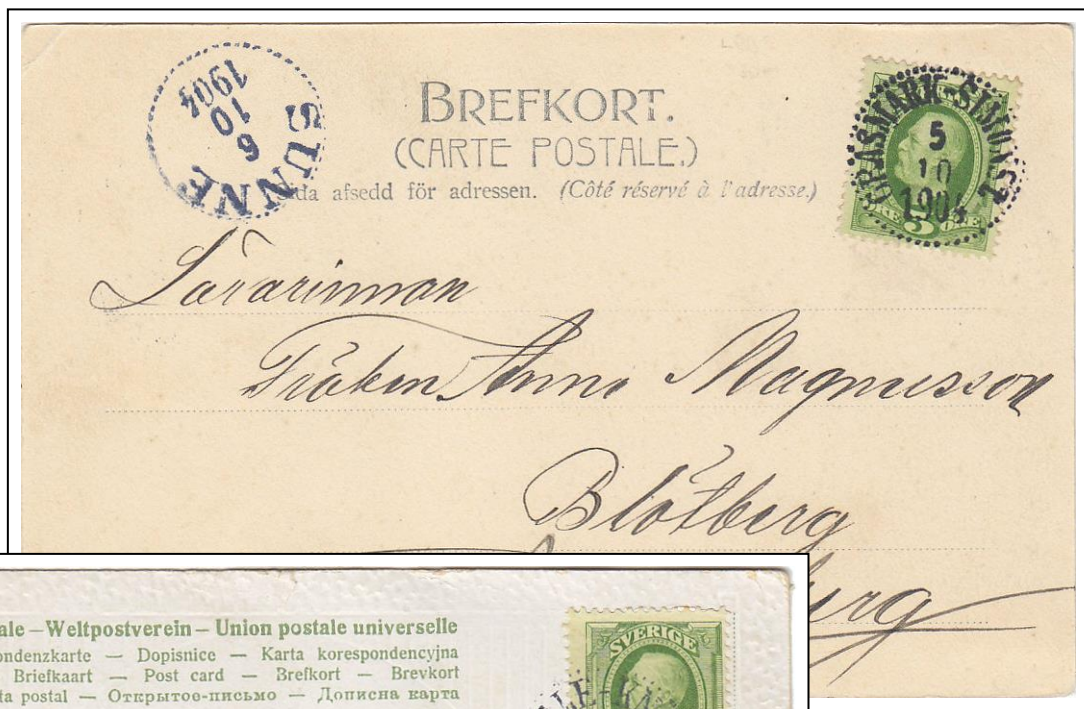 BREFKORT.
(CARTE POSTALE.)
da afsedd för adressen. (Côté réservé à l'adresse.)
SUNNE
6
10
1904
GRÄSMARK-SIMONST
5
10
1904
5 ÖRE
Lärarinnan
Fröken Anna Magnusson
Blötberg
urg
ale – Weltpostverein – Union postale universelle
ondenzkarte — Dopisnice — Karta korespondencyjna
Briefkaart — Post card — Brefkort — Brevkort
ta postal — Открытое-письмо — Дописна карта
SVERIGE